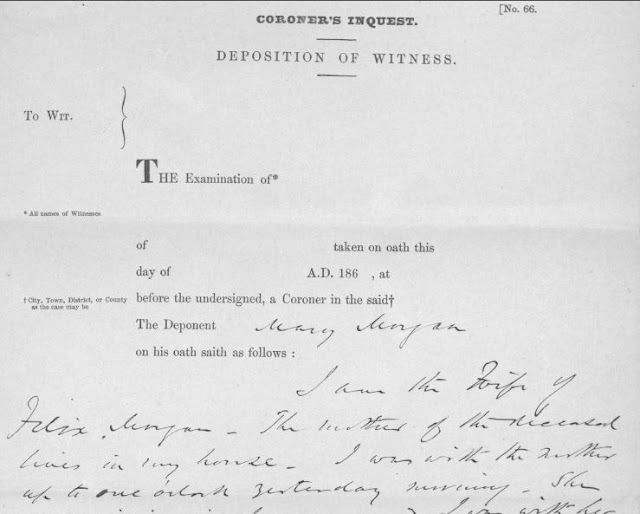 [No. 66.
CORONER'S INQUEST.
DEPOSITION OF WITNESS.
To Wit.
THE Examination of*
* All names of Witnesses
of taken on oath this
day of A.D. 186 , at
† City, Town, District, or County
as the case may be
before the undersigned, a Coroner in the said†
The Deponent Mary Morgan
on his oath saith as follows :
I am the Wife of
Felix Morgan - The mother of the deceased
lives in my house - I was with the mother
up to one o'clock yesterday morning - She
I was with her